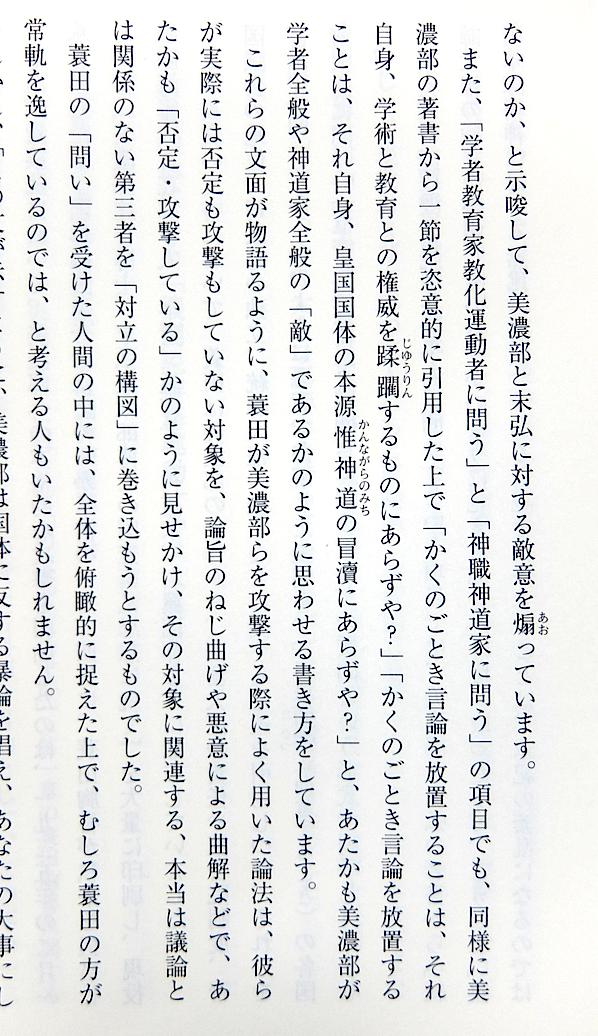 ないのか、と示唆して、美濃部と末弘に対する敵意を煽っています。
また、「学者教育家教化運動者に問う」と「神職神道家に問う」の項目でも、同様に美
濃部の著書から一節を恣意的に引用した上で「かくのごとき言論を放置することは、それ
自身、学術と教育との権威を蹂躙するものにあらずや?」「かくのごとき言論を放置する
ことは、それ自身、皇国国体の本源惟神道の冒瀆にあらずや?」と、あたかも美濃部が
学者全般や神道家全般の「敵」であるかのように思わせる書き方をしています。
これらの文面が物語るように、蓑田が美濃部らを攻撃する際によく用いた論法は、彼ら
が実際には否定も攻撃もしていない対象を、論旨のねじ曲げや悪意による曲解などで、あ
たかも「否定・攻撃している」かのように見せかけ、その対象に関連する、本当は議論と
は関係のない第三者を「対立の構図」に巻き込もうとするものでした。
蓑田の「問い」を受けた人間の中には、全体を俯瞰的に捉えた上で、むしろ蓑田の方が
常軌を逸しているのでは、と考える人もいたかもしれません。
美濃部は国体に反する暴論を唱え、あなたの大事にし